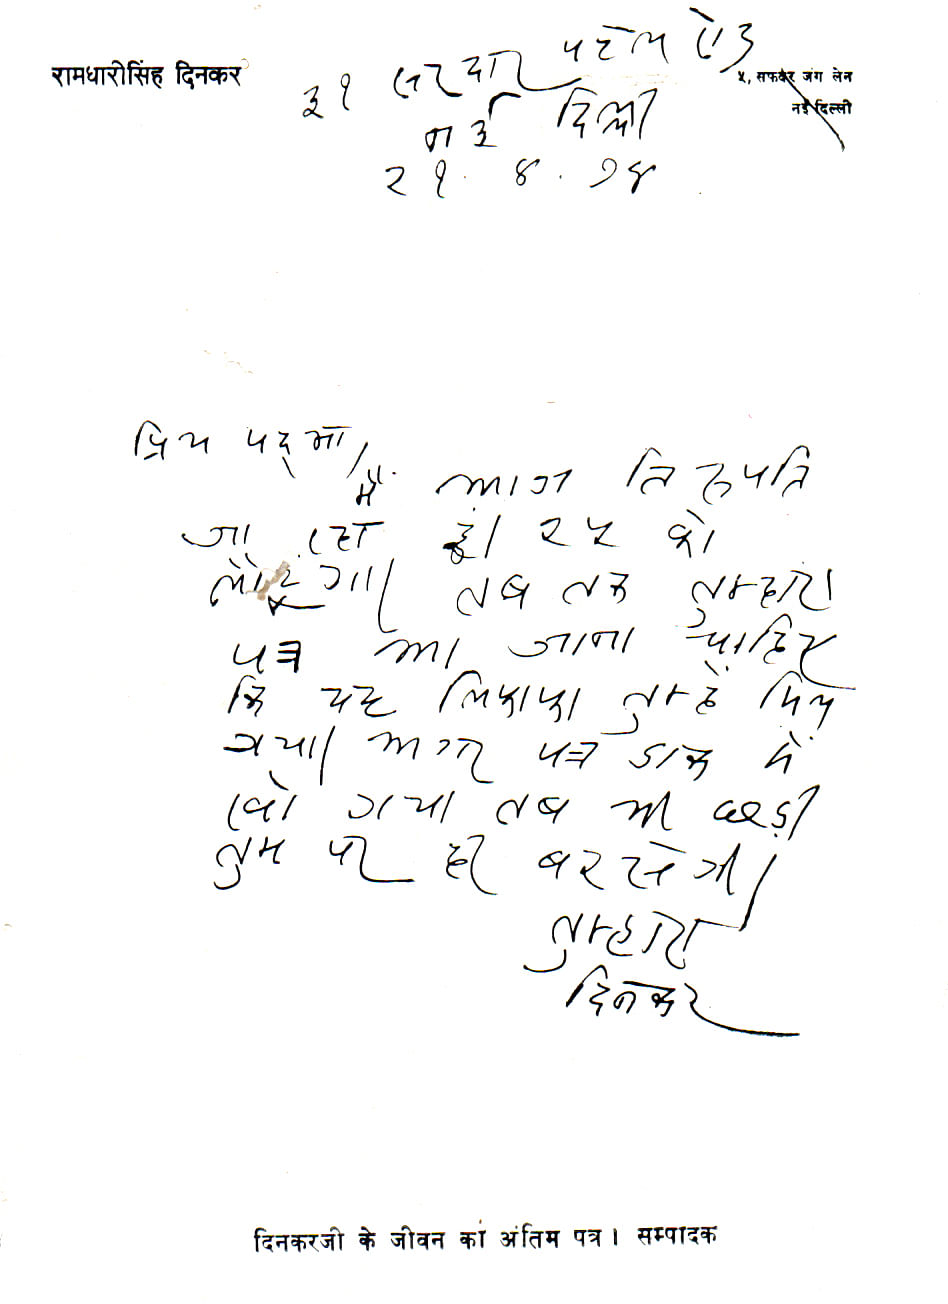 रामधारीसिंह दिनकर
५, सफदर जंग लेन
नई दिल्ली
३१ सरदार पटेल रोड
नई दिल्ली
२१. ४. ७४
प्रिय पद्मा,
मैं आज तिरुपति
जा रहा हूँ। २५ को
लौटूंगा। तब तक तुम्हारा
पत्र आ जाना चाहिए
कि यह लिफाफा तुम्हें मिल
गया। अगर पत्र डाक में
खो गया तब भी छड़ी
तुम पर ही बरसेगी।
तुम्हारा
दिनकर
दिनकरजी के जीवन का अंतिम पत्र। सम्पादक